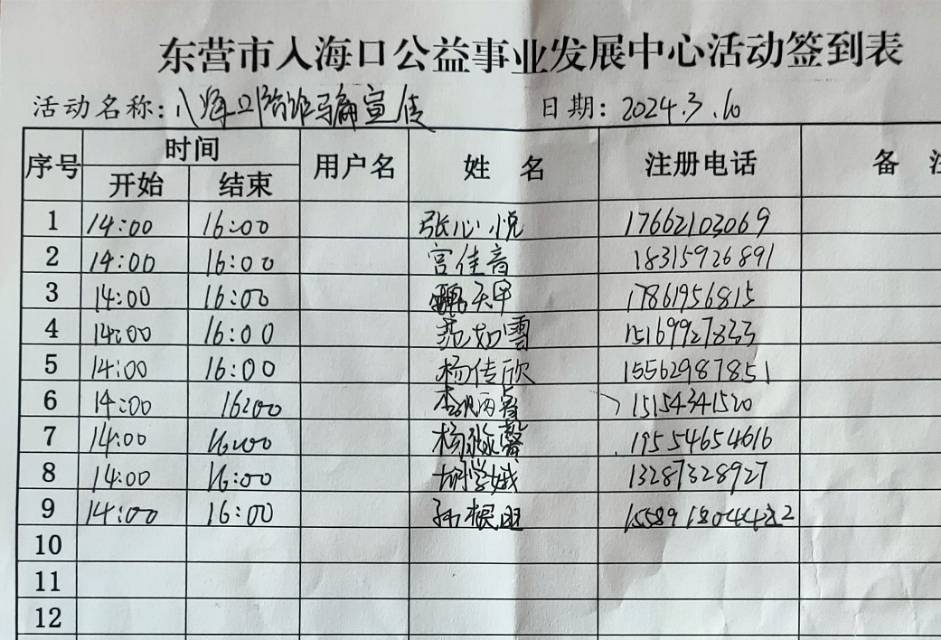 东营市入海口公益事业发展中心活动签到表
活动名称: 八海卫防诈骗宣传 日期: 2024.3.10
序号 时间 用户名 姓名 注册电话 备
开始 结束
1 14:00 16:00 张心悦 17662103069
2 14:00 16:00 宫佳音 18315926891
3 14:00 16:00 天甲 17861956815
4 14:00 16:00 范如雪 15169927833
5 14:00 16:00 杨佳欣 15562987851
6 14:00 16:00 15154341520
7 14:00 16:00 杨馨 19554654616
8 14:00 16:00 胡学娥 13287328927
9 14:00 16:00 孙根
10
11
12